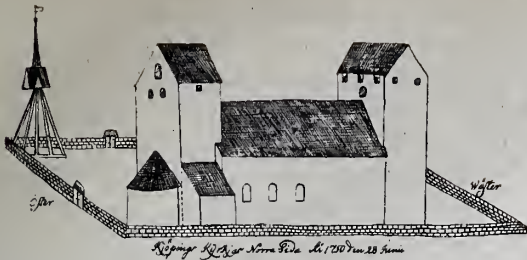 Öster
Wäster
Kjöpings Kyrkjas Norra Sida Åi 1750 den 28 Junii